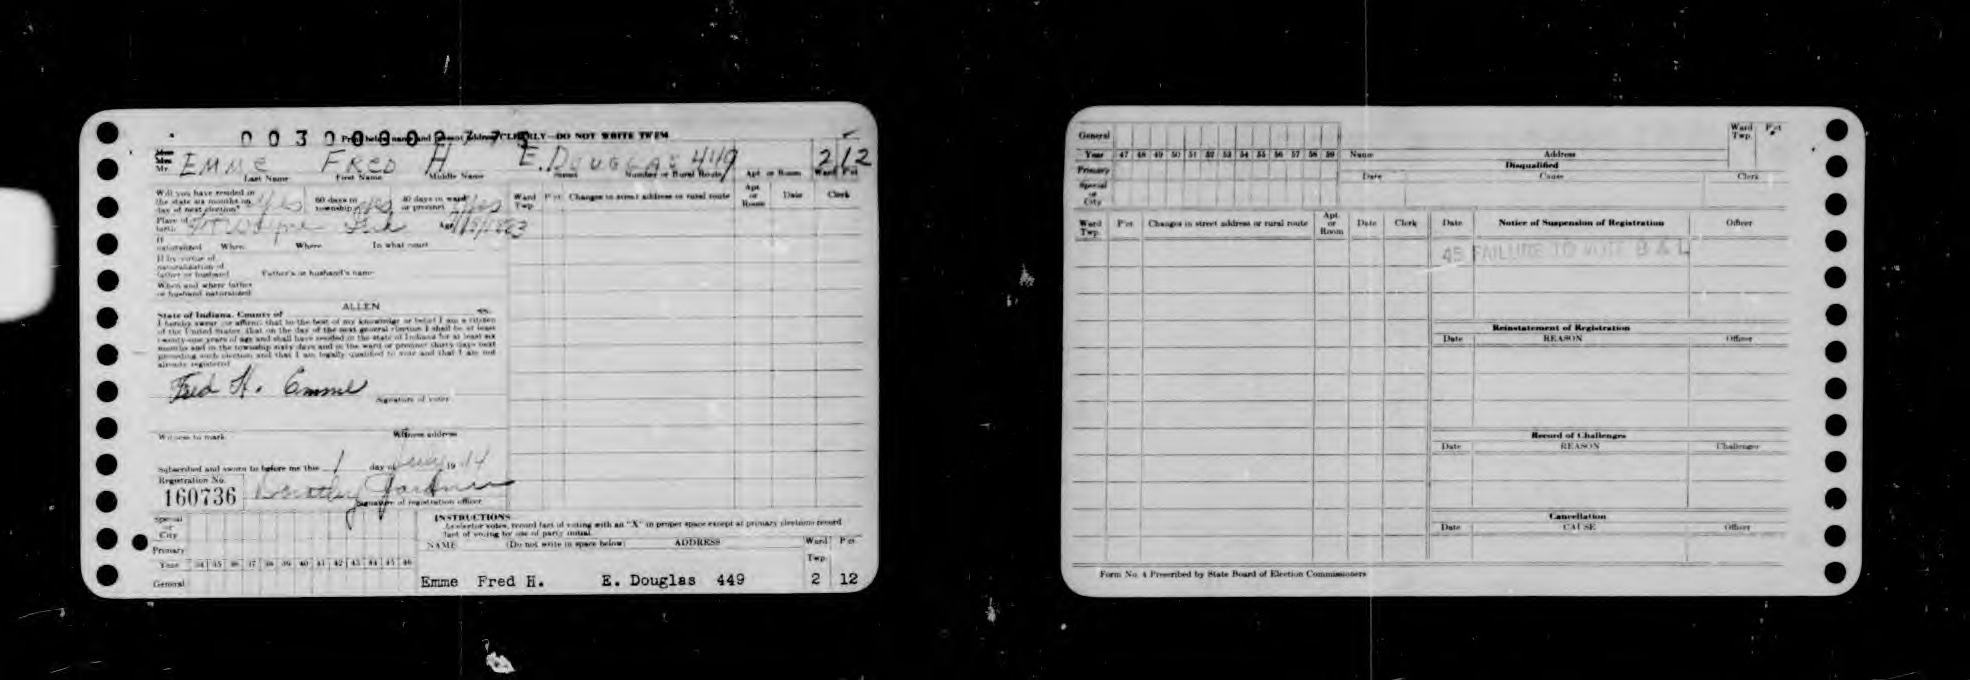 0 0 3 0 0 0 0 2 7 7 5
Print below name and present address CLEARLY—DO NOT WRITE THEM
Mr. EMME FRED H E. DOUGLAS 449 2 12
Last Name First Name Middle Name Street Number or Rural Route Apt or Room Ward Pct
Will you have resided in the state six months on day of next election? Yes 60 days in township Yes 30 days in ward or precinct Yes
Ward Twp. Pct Changes in street address or rural route Apt. or Room Date Clerk
Place of birth Ft Wayne Ind Age
If naturalized When Where In what court
If by virtue of naturalization of father or husband Father's or husband's name
When and where father or husband naturalized
ALLEN
State of Indiana, County of ss.
I hereby swear (or affirm) that to the best of my knowledge or belief I am a citizen
of the United States, that on the day of the next general election I shall be at least
twenty-one years of age and shall have resided in the state of Indiana for at least six
months and in the township sixty days and in the ward or precinct thirty days next
preceding such election and that I am legally qualified to vote and that I am not
already registered
Fred H. Emme
Signature of voter
Witness to mark Witness address
Subscribed and sworn to before me this 1 day of 19
Registration No.
160736 Dorothy Gardner
Signature of registration officer
Special or City
Primary
Year 34 35 36 37 38 39 40 41 42 43 44 45 46
General
INSTRUCTIONS
As elector votes, record fact of voting with an "X" in proper space except at primary elections record
fact of voting by use of party initial.
NAME (Do not write in space below) ADDRESS Ward Twp. Pct
Emme Fred H. E. Douglas 449 2 12
General
Year 47 48 49 50 51 52 53 54 55 56 57 58 59
Primary
Special or City
Name Address Ward Twp. Pct
Disqualified
Date Cause Clerk
Ward Twp. Pct Changes in street address or rural route Apt. or Room Date Clerk
Date Notice of Suspension of Registration Officer
45 FAILURE TO VOTE B & L
Reinstatement of Registration
Date REASON Officer
Record of Challenges
Date REASON Challenger
Cancellation
Date CAUSE Officer
Form No. 4 Prescribed by State Board of Election Commissioners